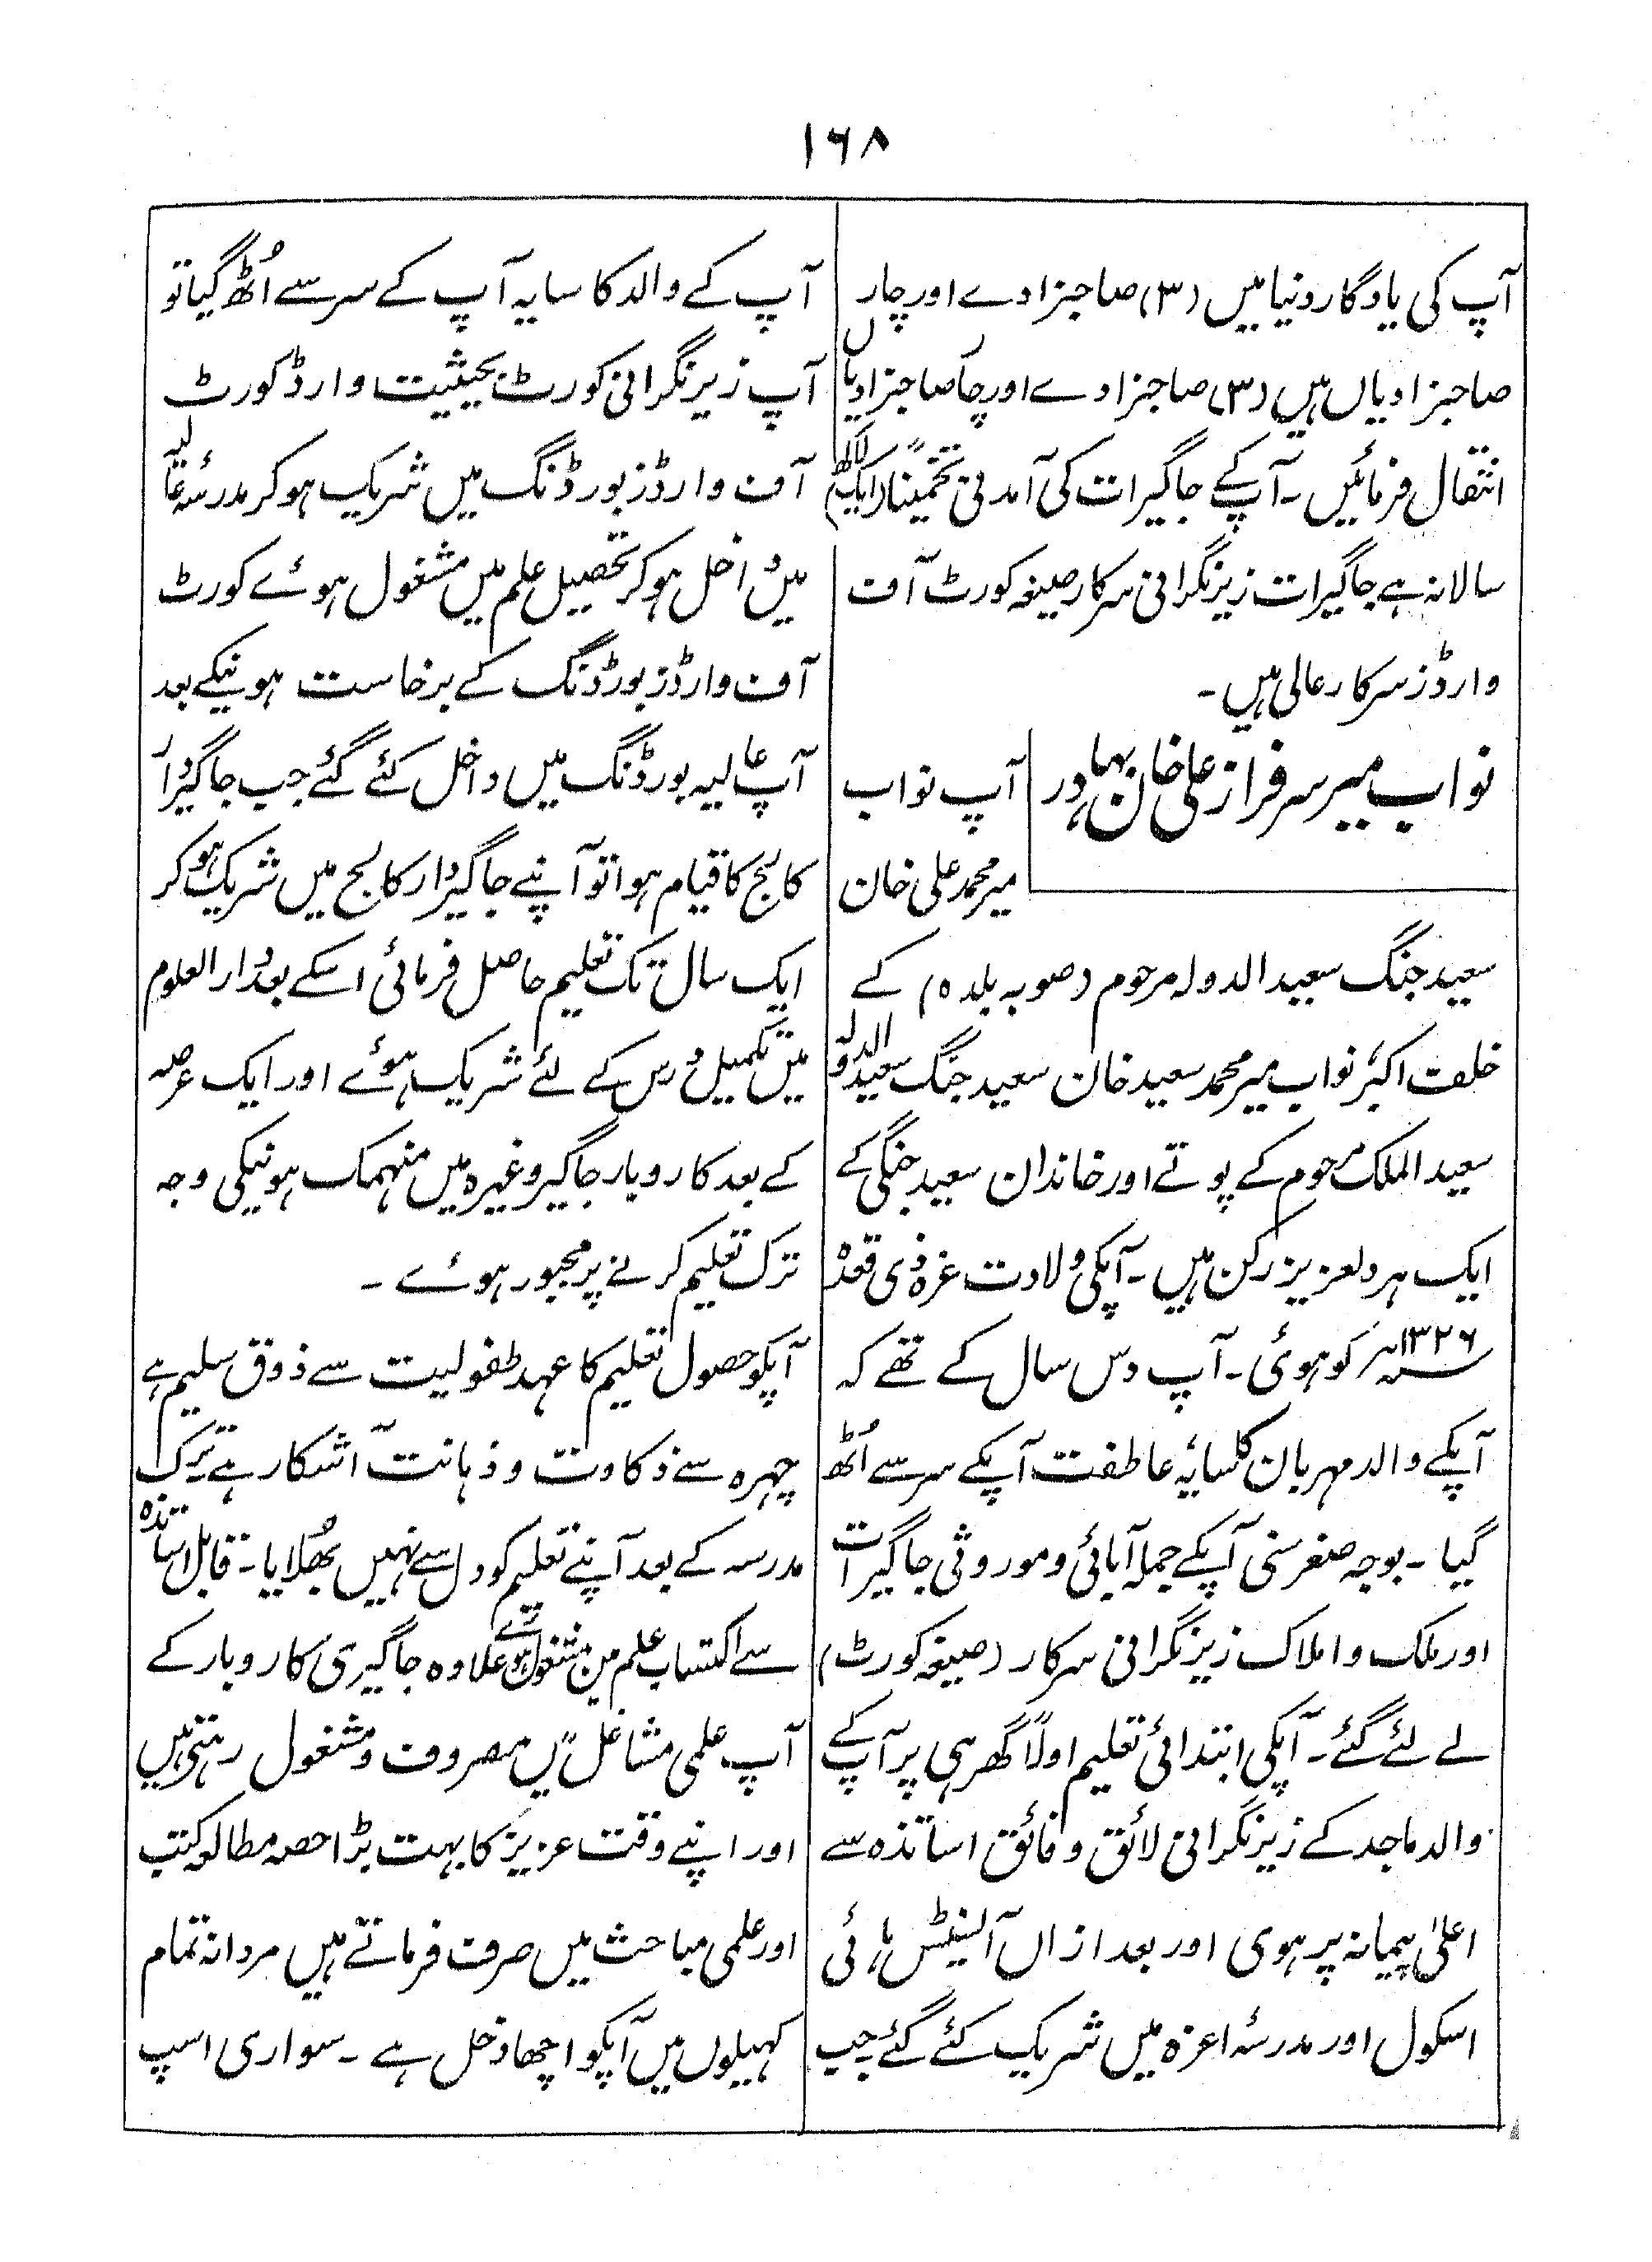 ۱۶۸
آپ کی یادگار دنیا میں (۳) صاحبزادے اور چار
صاحبزادیاں ہیں (۳) صاحبزادے اور چار صاحبزادیاں
انتقال فرمائیں ۔ آپ کے جاگیرات کی آمدنی تخمیناً (ایک لاکھ)
سالانہ ہے جاگیرات زیر نگرانی سرکار صیغہ کورٹ آف
وارڈز سرکار عالی ہیں ۔
نواب میر سرفراز علی خان بہادر
آپ نواب
میر محمد علی خان
سعید جنگ سعید الدولہ مرحوم (صوبہ بلدہ) کے
خلف اکبر نواب میر محمد سعید خان سعید جنگ سعید الدولہ
سعید الملک مرحوم کے پوتے اور خاندان سعید جنگی کے
ایک ہر دلعزیز رکن ہیں ۔ آپکی ولادت غرہ ذی قعدہ
سنہ ۱۳۲۶ھ کو ہوئی ۔ آپ دس سال کے تھے کہ
آپکے والد مہربان کا سایۂ عاطفت آپکے سر سے اُٹھ
گیا ۔ بوجہ صغر سنی آپکے جملہ آبائی و موروثی جاگیرات
اور ملک و املاک زیر نگرانی سرکار (صیغہ کورٹ)
لے لئے گئے ۔ آپکی ابتدائی تعلیم اولاً گھر ہی پر آپ کے
والد ماجد کے زیر نگرانی لائق و فائق اساتذہ سے
اعلیٰ پیمانہ پر ہوی اور بعد ازاں آلسینٹس ہائی
اسکول اور مدرسۂ اعزہ میں شریک کئے گئے جب
آپ کے والد کا سایہ آپ کے سر سے اُٹھ گیا تو
آپ زیر نگرانی کورٹ بحیثیت وارڈ کورٹ
آف وارڈز بورڈنگ میں شریک ہو کر مدرسۂ عالیہ
میں داخل ہو کر تحصیل علم میں مشغول ہوئے کورٹ
آف وارڈز بورڈنگ کے برخاست ہونیکے بعد
آپ عالیہ بورڈنگ میں داخل کئے گئے جب جاگیردار
کالج کا قیام ہوا تو آپنے جاگیردار کالج میں شریک ہو کر
ایک سال تک تعلیم حاصل فرمائی اسکے بعد دار العلوم
میں تکمیل درس کے لئے شریک ہوئے اور ایک عرصہ
کے بعد کاروبار جاگیر وغیرہ میں منہمک ہونیکی وجہ
ترک تعلیم کرنے پر مجبور ہوئے ۔
آپکو حصول تعلیم کا عہد طفولیت سے ذوق سلیم ہے
چہرہ سے ذکاوت و ذہانت آشکار ہے ترک
مدرسہ کے بعد آپنے تعلیم کو دل سے نہیں بھُلایا ۔ قابل اساتذہ
سے اکتساب علم میں مشغول رہے علاوہ جاگیری کاروبار کے
آپ علمی مشاغل میں مصروف و مشغول رہتے ہیں
اور اپنے وقت عزیز کا بہت بڑا حصہ مطالعہ کتب
اور علمی مباحث میں صرف فرماتے ہیں مردانہ تمام
کہیلوں میں آپکو اچھا دخل ہے ۔ سواری اسپ